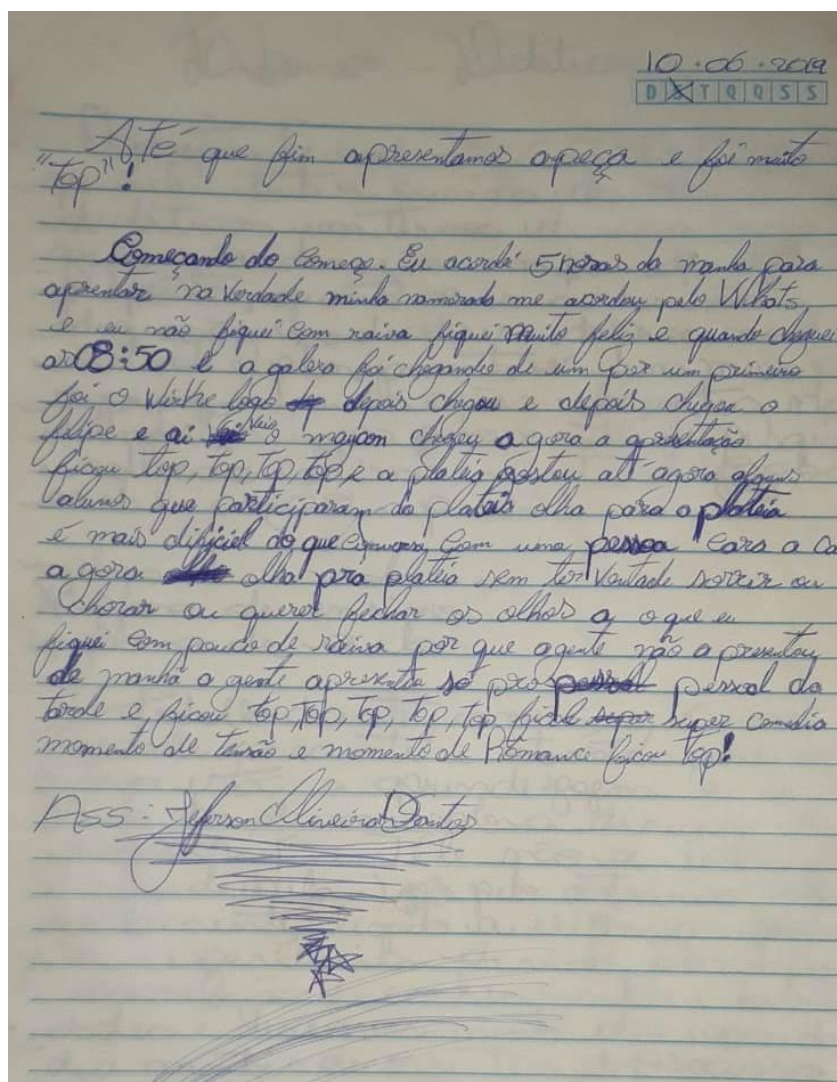 10.06.2019
D S T Q Q S S
Até que fim apresentamos a peça e foi muito
"Top"!
Começando do começo. Eu acordei 5 horas da manhã para
aprentar na verdade minha namorada me acordou pelo Whats
e eu não fiquei com raiva fiquei muito feliz e quando cheguei
as 08:50 e a galera foi chegando de um por um primeiro
foi o logo depois chegou e depois chegou o
filipe e ai o maycon chegou agora a apresentação
ficou top, top, top, top, e a platéia gostou até agora alguns
alunos que participaram da platéis olha para a platéia
é mais dificiel do que com uma pessoa cara a ca
agora olha pra platéia sem ter vontade sorrir ou
chorar ou querer fechar os olhos a o que eu
fiquei com pouco de raiva por que agente não apresentou
de manhã a gente apresentou só pros pessoal da
tarde e ficou top, top, top, top, top super comedia
momento de tensão e momento de Romance ficou top!
Ass: Jeferson Oliveira Dantas